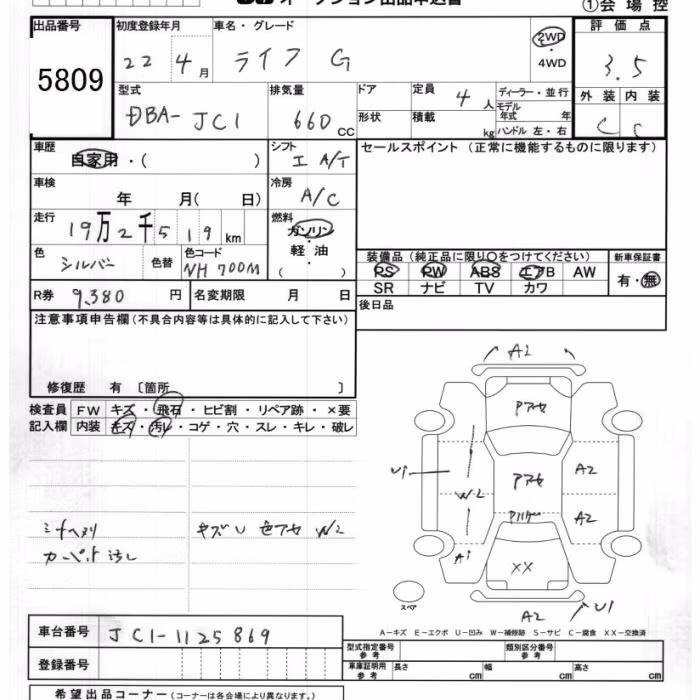 ①会場控
出品番号 初度登録年月 車名・グレード 2WD 評価点
5809 22 4月 ライフ G 4WD 3.5
型式 排気量 ドア 定員 4人 ディーラー・並行 外装 内装
DBA-JC1 660CC 形状 積載 kg モデル年式 年 C C
ハンドル 左・右
車歴 シフト セールスポイント (正常に機能するものに限ります)
自家用・( ) I A/T
車検 冷房
年 月( 日) A/C
走行 燃料
19万2千519km ガソリン
軽油
( )
色 シルバー 色替 色コード NH700M
装備品 (純正品に限り○をつけてください) 新車保証書
PS PW ABS エアB AW 有・無
SR ナビ TV カワ
R券 9,380円 名変期限 月 日 後日品
注意事項申告欄 (不具合内容等は具体的に記入して下さい)
修復歴 有 [箇所 ]
検査員 FW キズ・飛石・ヒビ割・リペア跡・×要
記入欄 内装 キズ・汚レ・コゲ・穴・スレ・キレ・破レ
A2
Pアセ
U1 Pアセ A2
W2 A2
A1 XX
スペア
A2 U1
キズU 色アセ W2
カーペット汚レ
A-キズ E-エクボ U-凹み W-補修跡 S-サビ C-腐食 XX-交換済
車台番号 JC1-1125869
登録番号
型式指定番号 参考 類別区分番号 参考
車庫証明用 参考 長さ cm 幅 cm 高さ cm
希望出品コーナー (コーナーは各会場により異なります。)